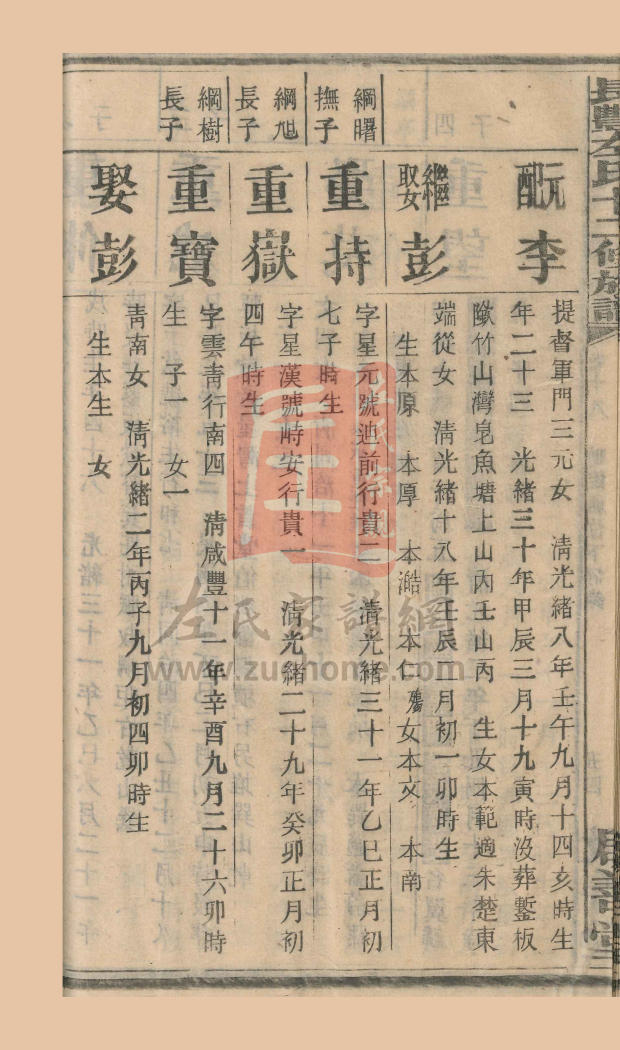 長豐左氏十二修族譜
元配
李
提督軍門三元女　清光緒八年壬午九月十四亥時生
年二十三　光緒三十年甲辰三月十九寅時沒葬鏨板
歐竹山灣皂魚塘上山內壬山丙　生女本範適朱楚東
繼娶
彭
端從女　清光緒十八年壬辰二月初一卯時生
生本原　本厚　本澔　本仁殤女本文　本南
綱曙
撫子
重持
字星元號廸前行貴二　清光緒三十一年乙巳正月初
七子時生
綱旭
長子
重嶽
字星漢號峙安行貴一　清光緒二十九年癸卯正月初
四午時生
綱樹
長子
重寶
字雲青行南四　清咸豐十一年辛酉九月二十六卯時
生　子一　女一
娶
彭
青南女　清光緒二年丙子九月初四卯時生
生本生　女
左氏家譜網
www.zuohome.com